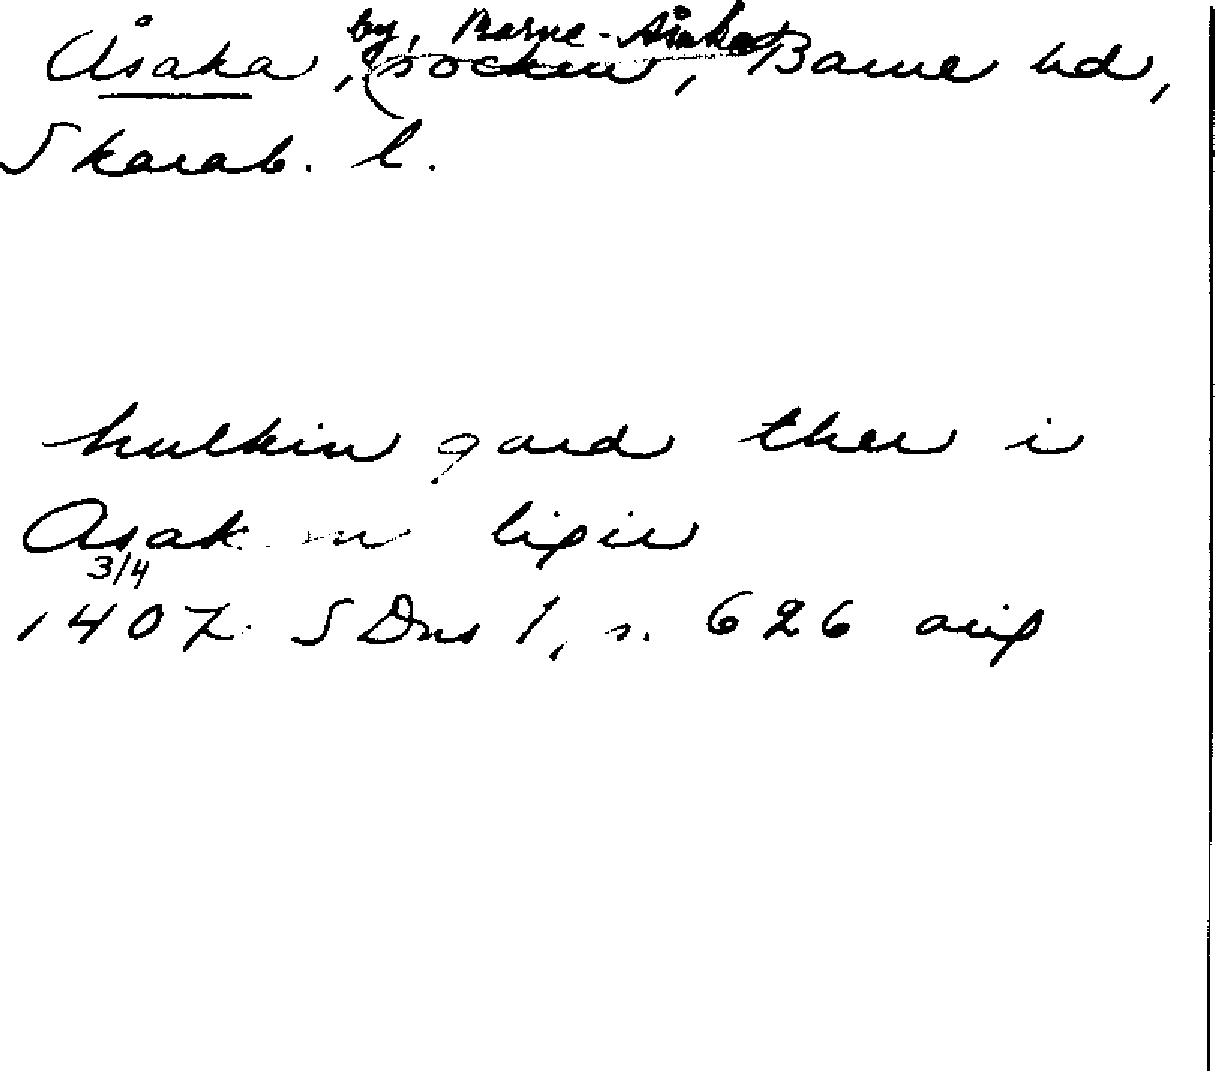 by, Barne-Åsaka
Åsaka, socken, Barne hd,
Skarab. l.
hulkin gard ther i
Asak m ligir
3/4
1407 SDns 1, s. 626 avs